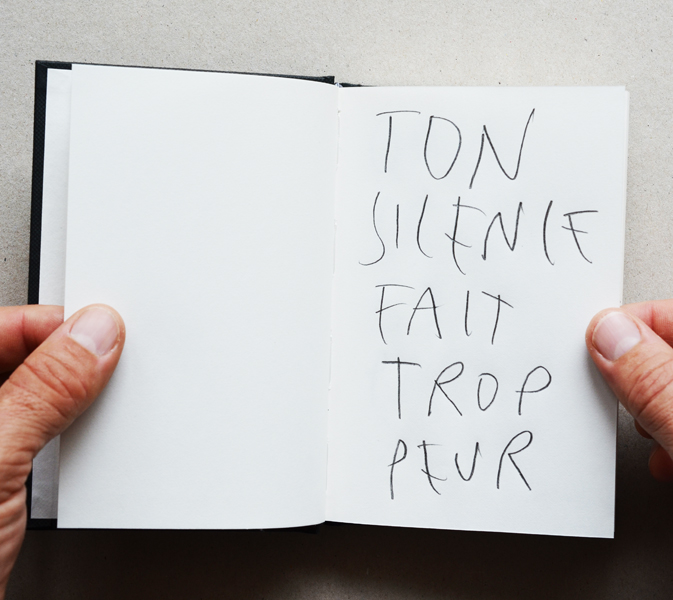 TON
SILENCE
FAIT
TROP
PEUR